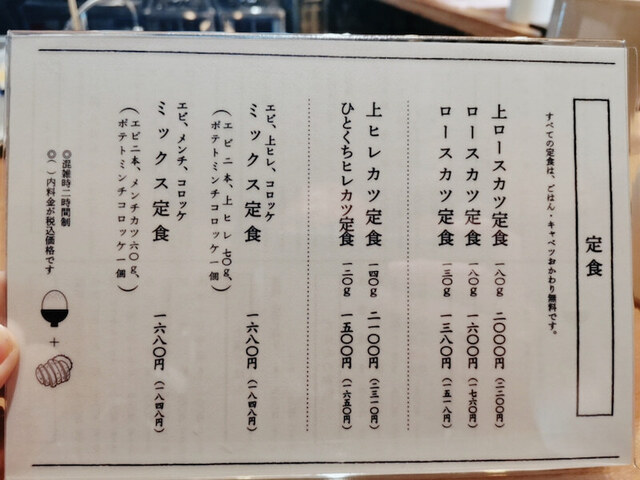 定食
すべての定食は、ごはん・キャベツおかわり無料です。
上ロースカツ定食 一八〇g 二〇〇〇円（二二〇〇円）
ロースカツ定食 一八〇g 一六〇〇円（一七六〇円）
ロースカツ定食 一三〇g 一三八〇円（一五一八円）
上ヒレカツ定食 一四〇g 二一〇〇円（二三一〇円）
ひとくちヒレカツ定食 一二〇g 一五〇〇円（一六五〇円）
エビ、上ヒレ、コロッケ
ミックス定食 一六八〇円（一八四八円）
（エビ二本、上ヒレ七〇g、
ポテトミンチコロッケ一個）
エビ、メンチ、コロッケ
ミックス定食 一六八〇円（一八四八円）
（エビ二本、メンチカツ六〇g、
ポテトミンチコロッケ一個）
◎混雑時二時間制
◎（ ）内料金が税込価格です
+